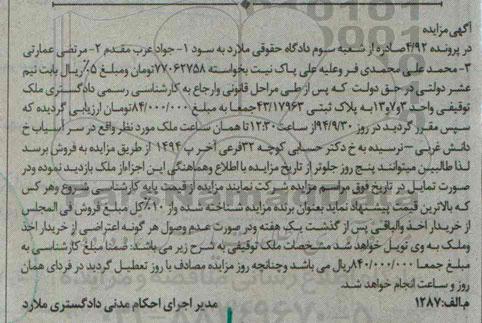 آگهی مزایده
در پرونده ۴/۹۲صادره از شعبه سوم دادگاه حقوقی ملارد به سود ۱- جواد عرب مقدم ۲- مرتضی عمارتی
۳- محمد علی محمدی فر وعلیه علی پاک نیت بخواسته ۷۷۰۶۲۷۵۸تومان ومبلغ ۵٪ریال بابت نیم
عشر دولتی در حق دولت که پس از طی مراحل قانونی وارجاع به کارشناسی رسمی دادگستری ملک
توقیفی واحد ۳و۷و۱۳به پلاک ثبتی ۴۳/۱۷۹۶۳جمعا به مبلغ ۸۴/۰۰۰/۰۰۰تومان ارزیابی گردیده که
سپس مقرر گردید در روز ۹۴/۹/۳۰از ساعت ۱۲:۳۰تا همان ساعت ملک مورد نظر واقع در سر آسیاب خ
دانش غربی – نرسیده به خ دکتر حسابی کوچه ۳۲فرعی آخر پ ۱۴۹۴ از طریق مزایده به فروش برسد
لذا طالبین میتوانند پنج روز جلوتر از تاریخ مزایده با اطلاع وهماهنگی این اجرا،از ملک بازدید نموده ودر
صورت تمایل در تاریخ فوق مراسم مزایده شرکت نمایند مزایده از قیمت پایه کارشناسی شروع وهر کس
که بالاترین قیمت پیشنهاد نماید بعنوان برنده مزایده شناخته شده واز ۱۰٪کل مبلغ فروش فی المجلس
از خریدار اخذ والباقی پس از گذشت یک هفته ودر صورت عدم وصول هر گونه اعتراضی از خریدار اخذ
وملک به وی تویل خواهد شد مشخصات ملک توقیفی به شرح زیر می باشد: ضمنا مبلغ کارشناسی به
مبلغ جمعا ۸۴۰/۰۰۰/۰۰۰ریال می باشد وچنانچه روز مزایده مصادف با روز تعطیل گردید در فردای همان
روز و ساعت انجام خواهد شد.
م.الف:۱۲۸۷ مدیر اجرای احکام مدنی دادگستری ملارد